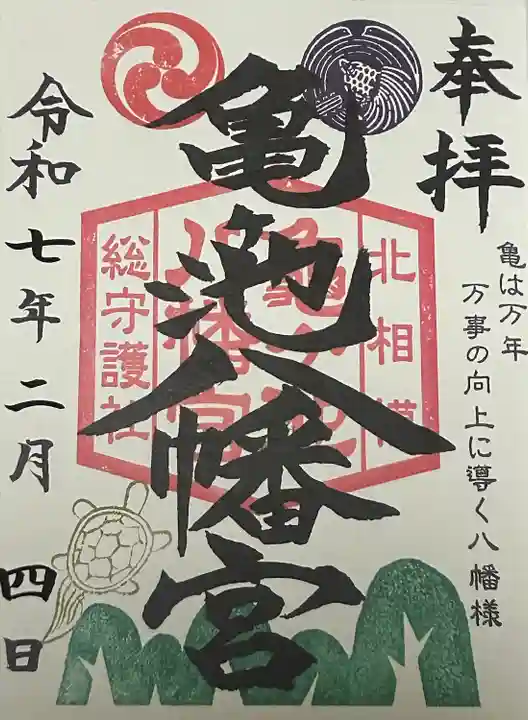 奉拝
亀は万年
万事の向上に導く八幡様
亀池八幡宮
北相模
総守護社
令和七年二月四日